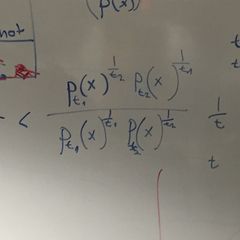 (p(x))
not
< \frac{p_{t_1}(x)^{\frac{1}{t_2}} p_{t_2}(x)^{\frac{1}{t_1}}}{p_{t_1}(x)^{\frac{1}{t_1}} p_{t_2}(x)^{\frac{1}{t_2}}} \frac{1}{t}
t